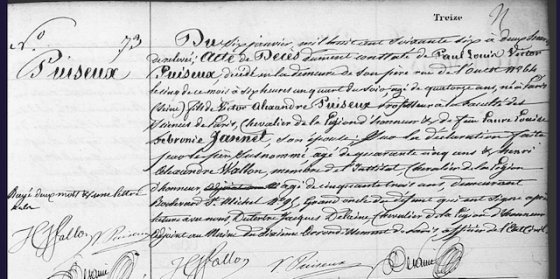 Treize
N° 73
Puiseux
Du six janvier mil huit cent soixante six à deux heures
de relevé, Acte de Décès dument constaté de Paul Louis Victor
Puiseux, décédé en la demeure de son père rue de l'ouest N° 64
le cinq de ce mois à six heures un quart du soir âgé de quatorze ans, né à Paris
(Seine) fils de Victor Alexandre Puiseux professeur à la faculté des
Sciences de Paris, Chevalier de la Légion d'honneur & de feue Laure Louise
Jannet, son épouse; Sur la déclaration faite
par le père susnommé âgé de quarante cinq ans & Henri
Alexandre Wallon, membre de l'Institut Chevalier de la Légion
d'honneur âgé de cinquante trois ans, demeurant
Boulevard St Michel N° 95, Grand oncle du défunt qui ont signé après
lecture avec nous Jacques Chevalier de la Légion d'honneur
adjoint au Maire du sixième arrondissement de Paris, officier de l'Etat Civil
Rayé deux mots & une lettre
nuls
H Wallon
V Puiseux
V Puiseux